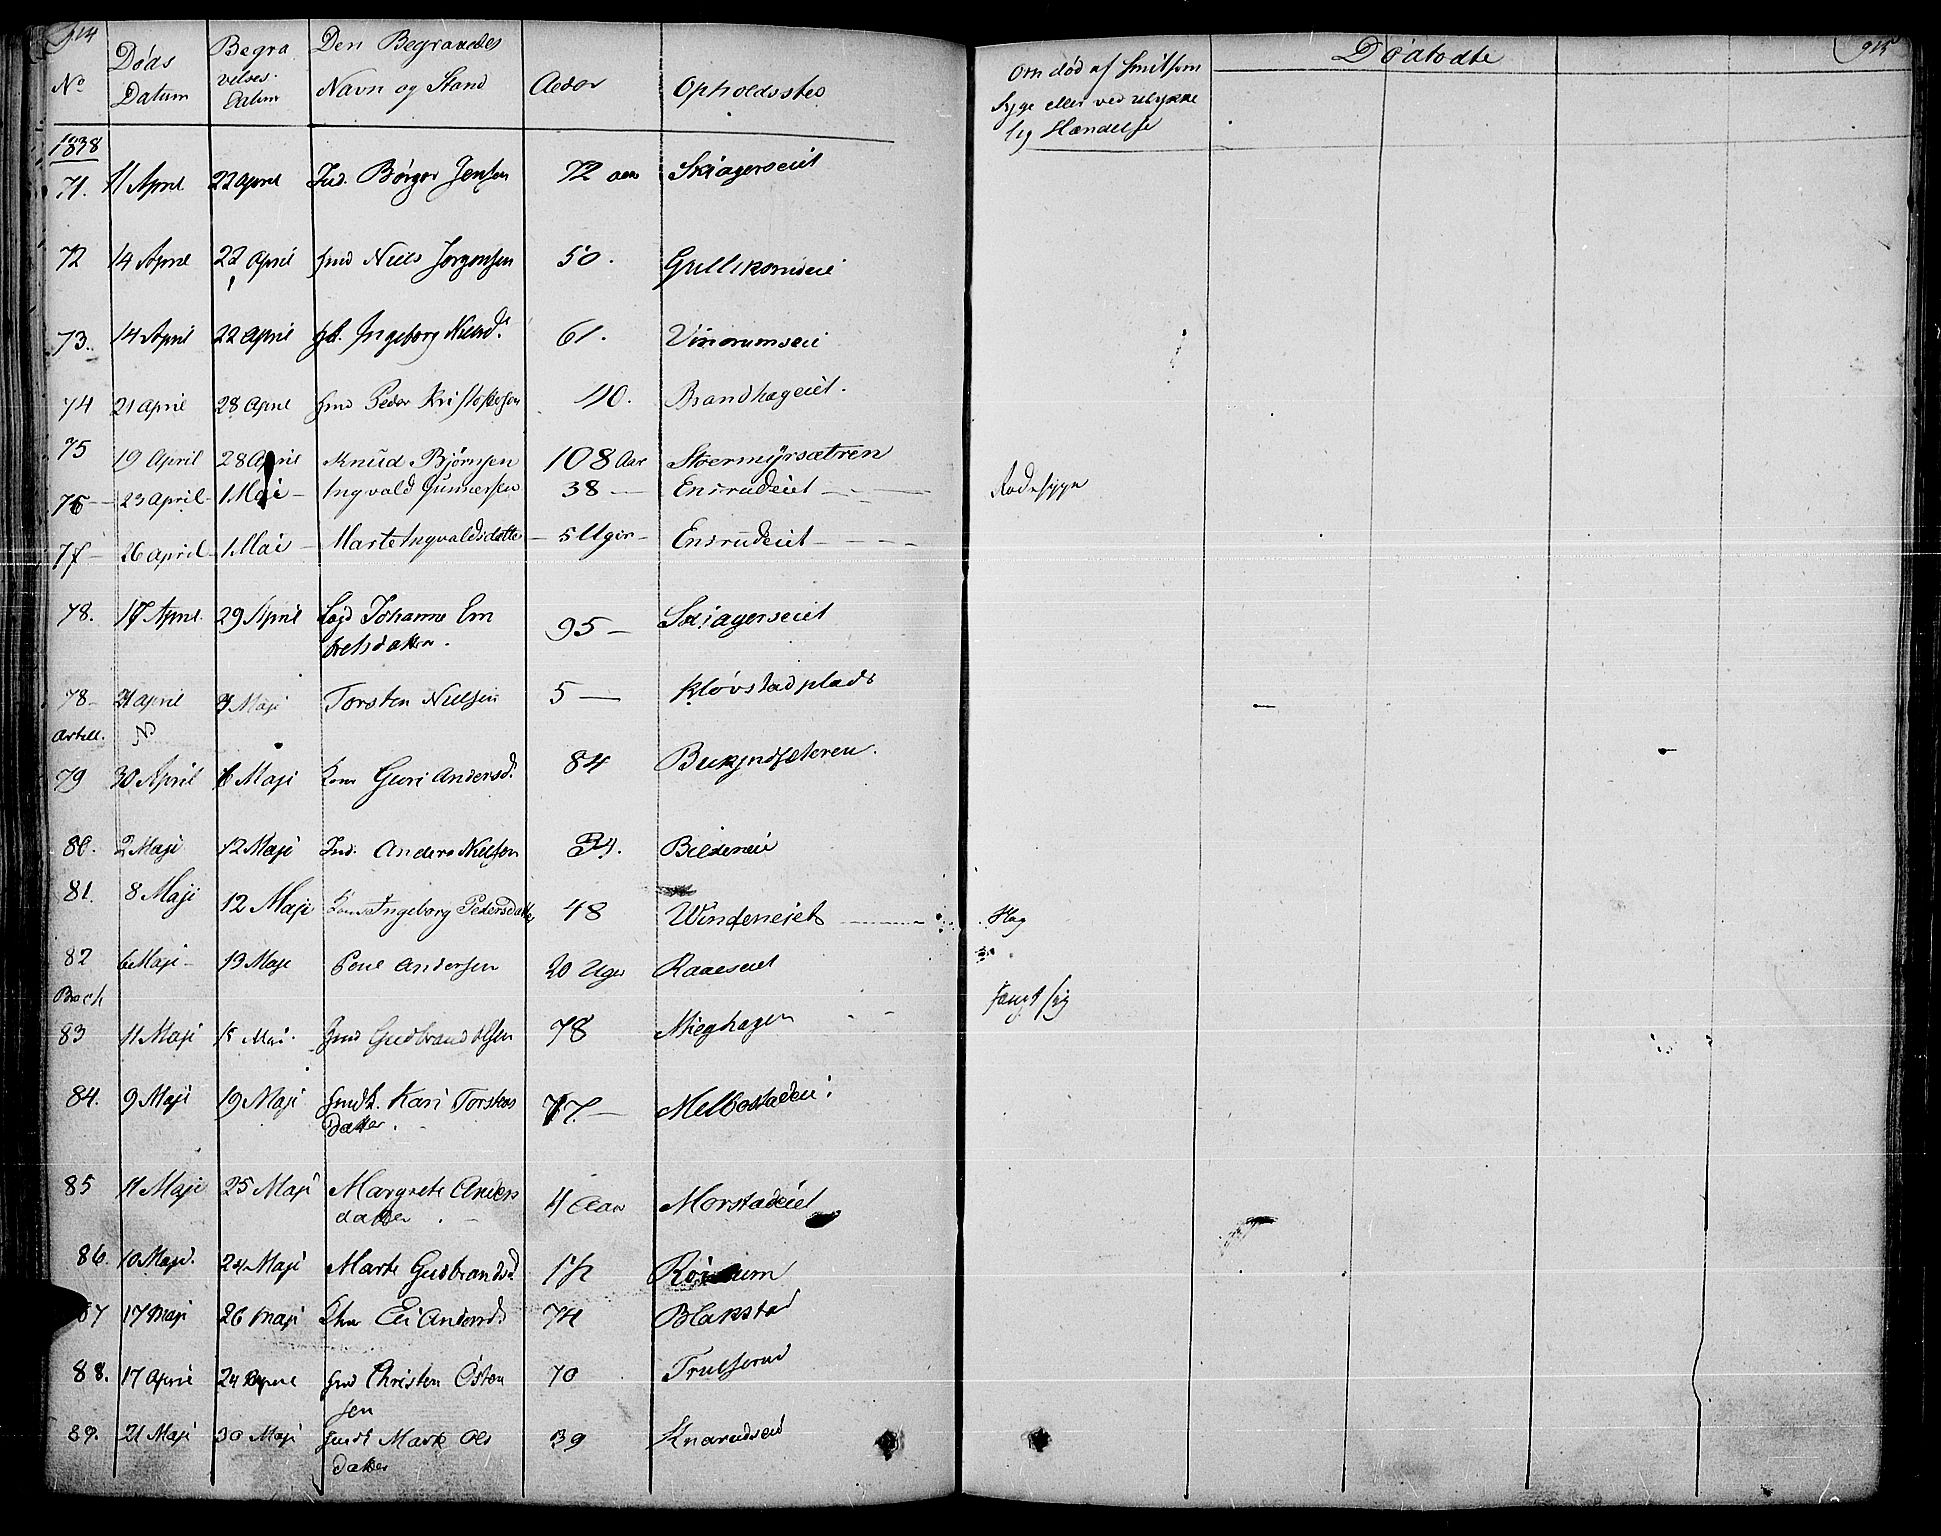 914
No Døds Datum Begravelses Datum Den Begravedes Navn og Stand Alder Opholdssted
1838
71. 11 April 22 April Ind. Børger Jensen 72 aar Skiagerseiet
72 14 April 22 April Jnd Niels Jørgensen 50. Gullixrudseie
73. 14 April 22 April Ingeborg Nielsd. 61. Vinorumseie
74 21 April 28 April Jnd Peder Kristofersen 40. Brandhageiet.
75 19 April 28 April Knud Bjørnsen 108 Aar Stoermyrsætren
76 – 23 April – 1 Mai – Ingvald Gunnersen 38 – Ensrudeiet – Radesyge
77 – 26 april – 1 Mai – Marte Ingvaldsdatter – 5 Uger – Ensrudeiet –
78. 17 April 29 April Lægd Johanne Em 95 – Skiagerseiet
bretsdatter.
78 – 21 april 3 Maji Torsten Nielsen 5 – Kløvstadplads
79 30 April 6 Maji Kone Guri Andersd. 84 Buxyndsæteren.
80. 2 Maji 12 Maji Ind. Anders Nielsen 34. Bildeneie
81. 8 Maji 12 Maji Kone Ingeborg Pedersdatter 48 Windeneiet Slag
82 6 Maji – 13 Maji Poul Andersen 20 Uger Raaeseiet
Bech
83 11 Maji Mai. Jnd Gudbrand Olsen 78 Mieghagen
84. 9 Maji 19 Maji Kari Torstens 77. – Melbostadeie
Datter.
85 11 Maji 25 Maji Margrete Anders 4 Aar Morstadeiet
datter.
86. 10 Maji. 24 Maji Marte Gudbrandsd
87 17 Maji 26 Maji Andersd. 74 Blakstad
88. 17 April 24 April Jnd Christen Østen 70 Trulserud
sen
89. 21 Maji 30 Maji Marte Ols 39 Knarudseie
Datter
915
Om død af Smitsom
Syge eller ved ulykke
lig Hændelse
Dødfødte